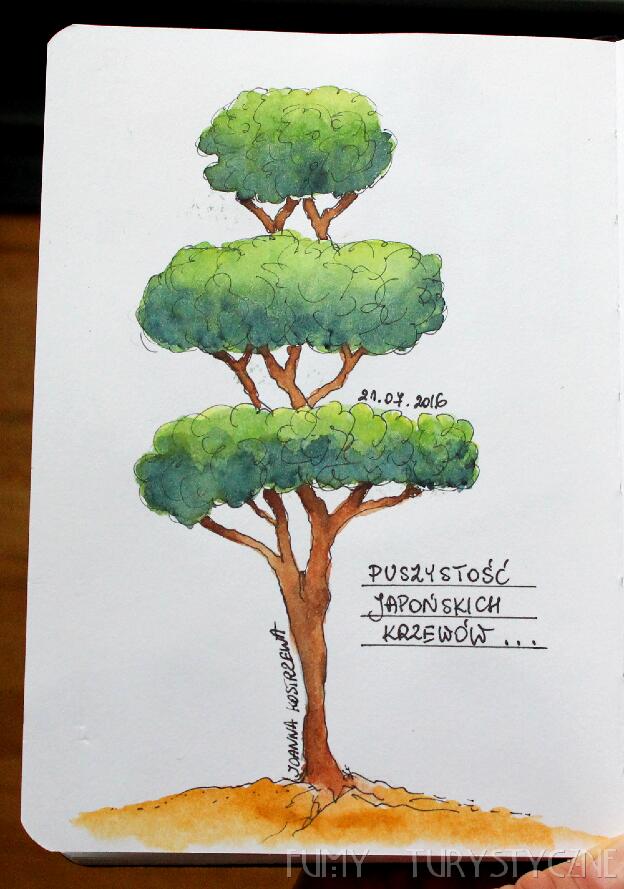 21.07.2016
PUSZYSTOŚĆ
JAPOŃSKICH
KRZEWÓW ...
JOANNA KOSTRZEWA
FUMY TURYSTYCZNE